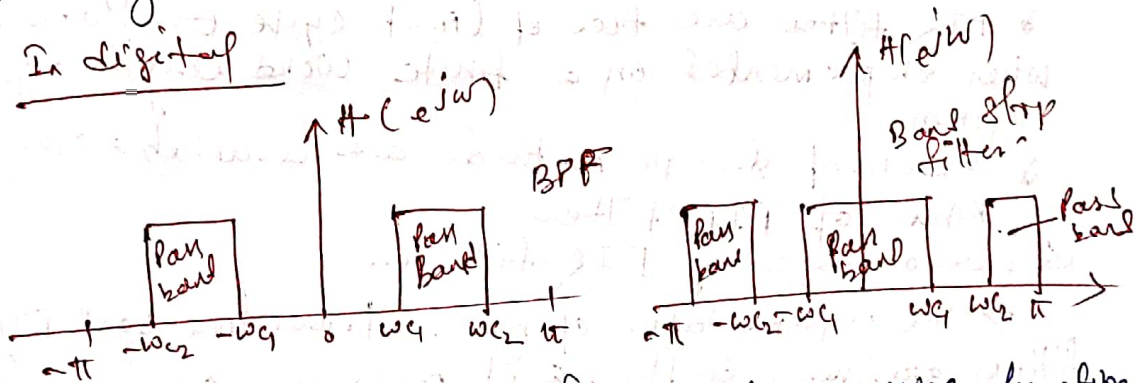 In digital
H(e^jw)
BPF
Pass band
Pass Band
-π -wc2 -wc1 0 wc1 wc2 π
H(e^jw)
Band Stop
filter
Pass band
Pass band
Pass band
-π -wc2 -wc1 wc1 wc2 π